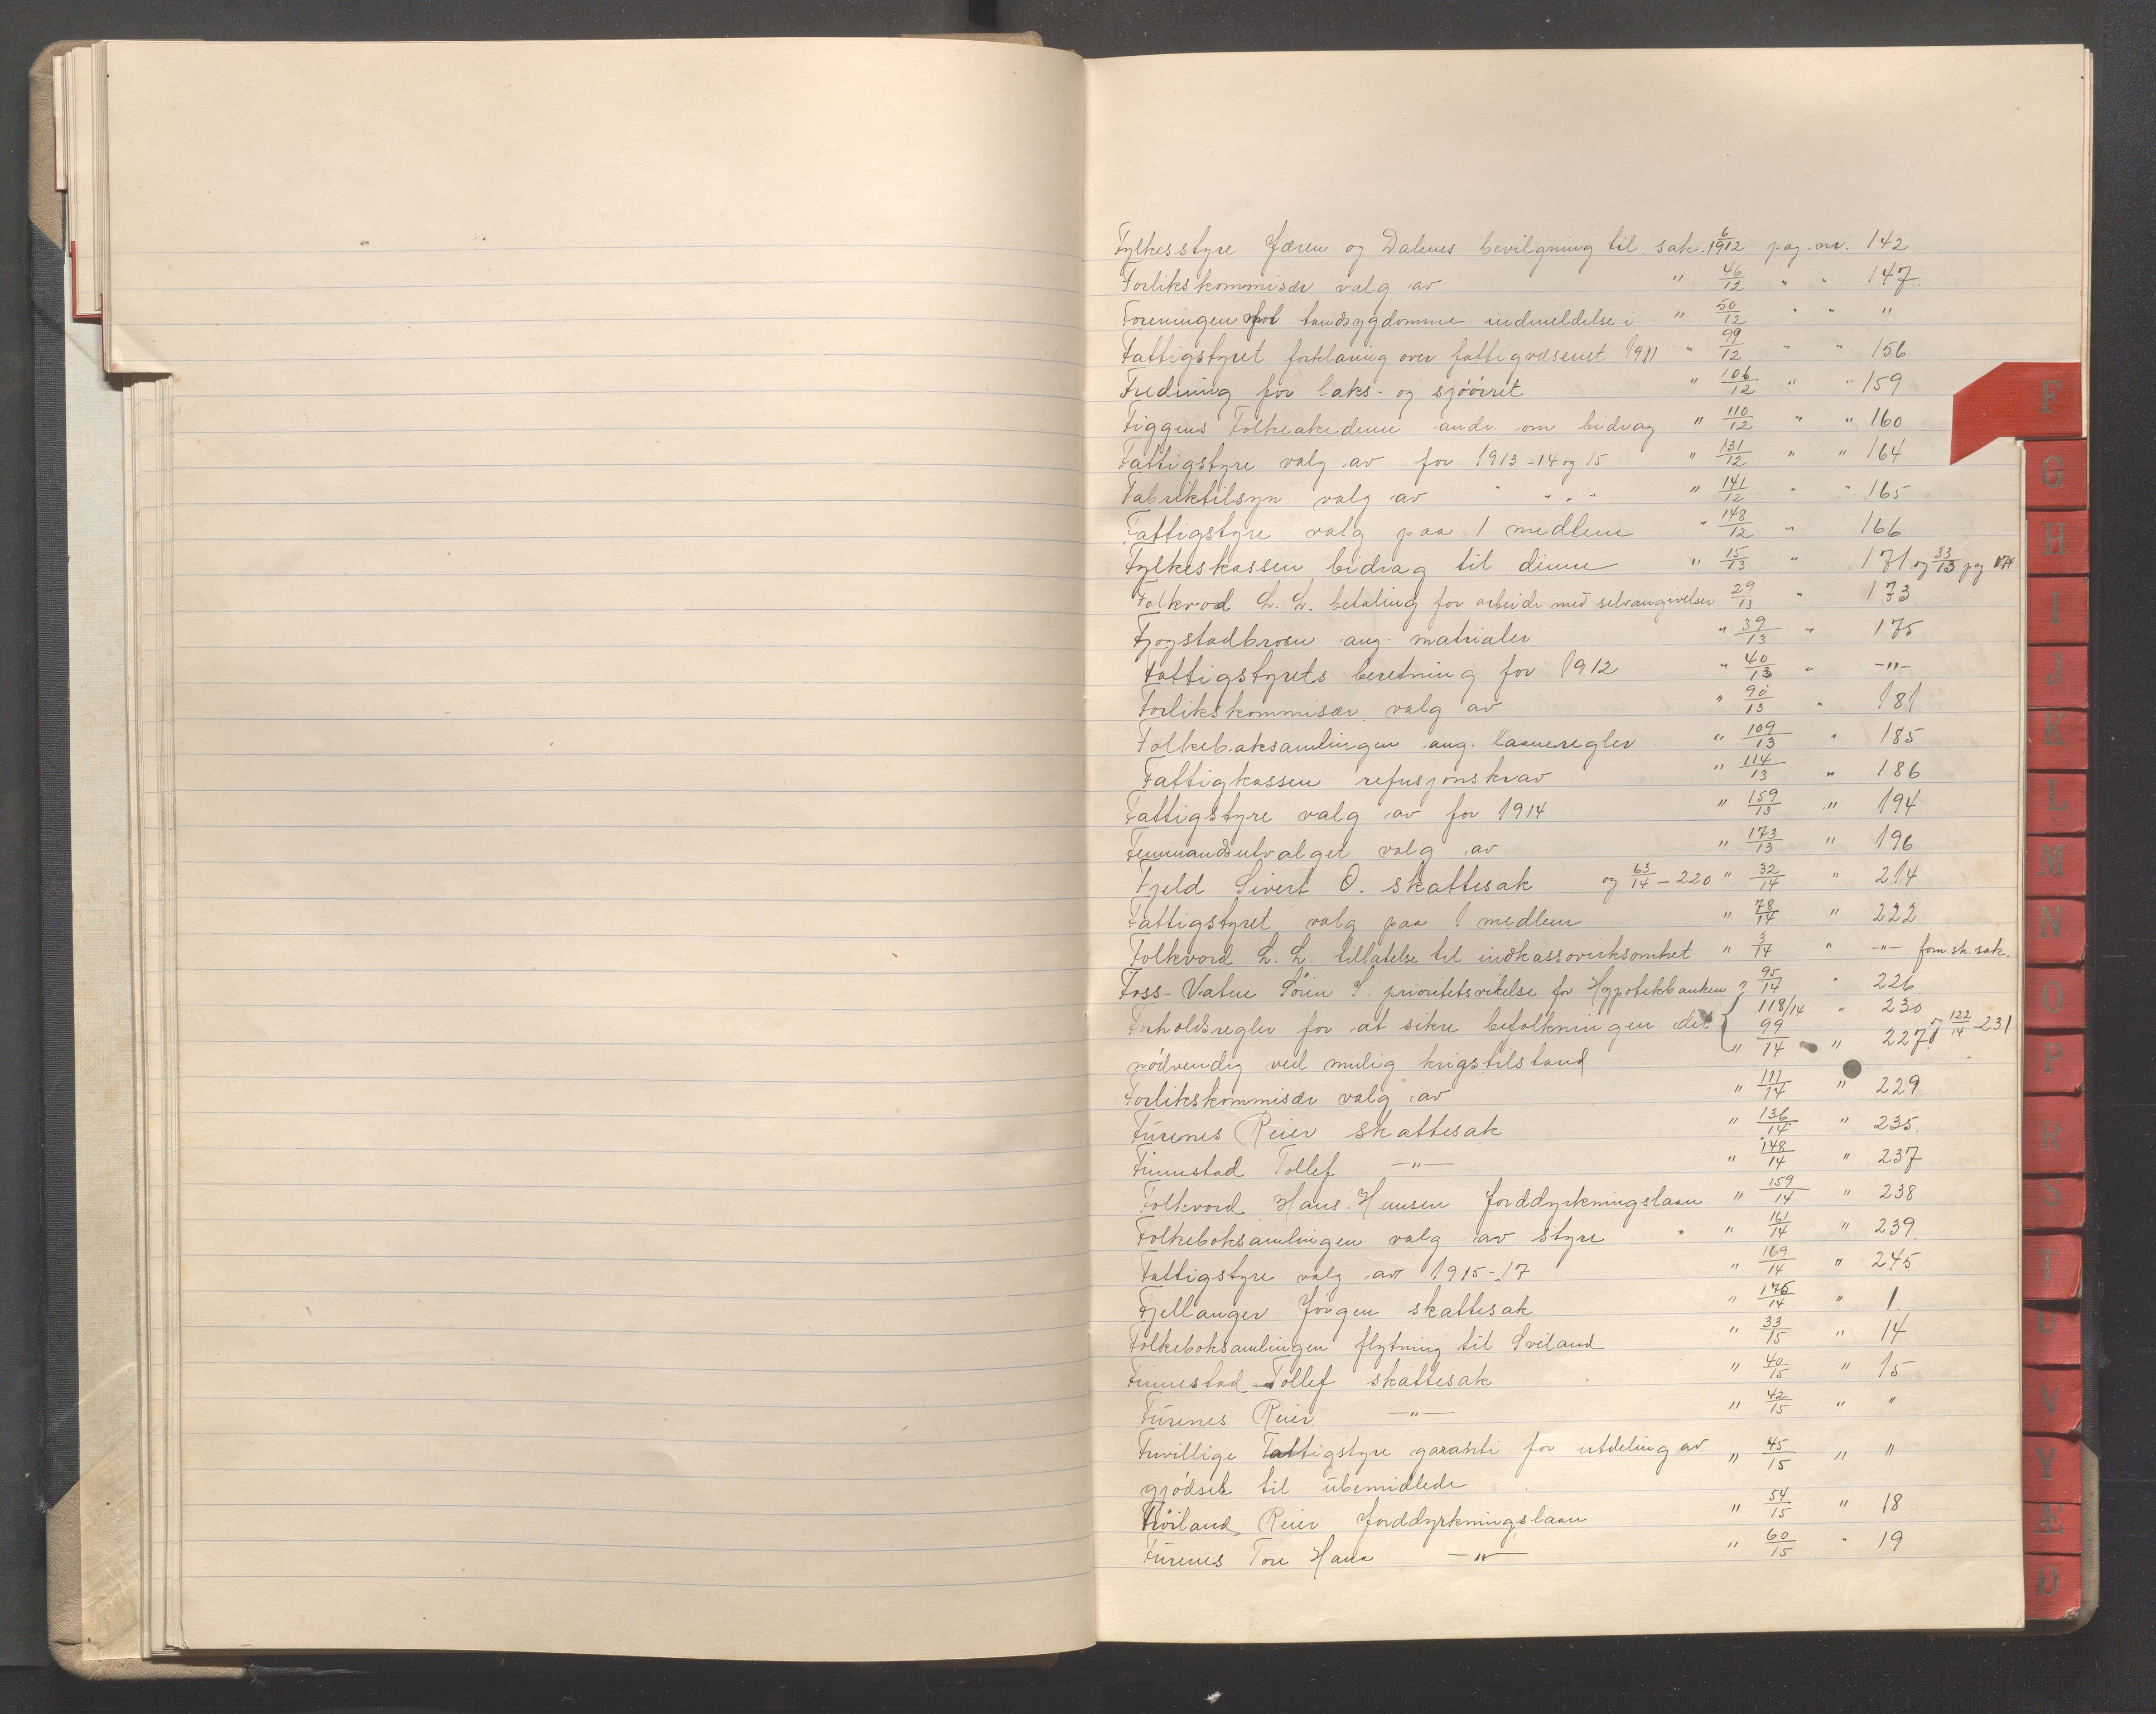 Fylkesstyre Jæren og Dalenes bevilgning til sak. 6/1912 pag. nr. 142
Forlikskommisær valg av " 46/12 " " 147
Foreningen mot tandsygdomme indmeldelse i " 50/12 " " "
Fattigstyret forklaring over fattigvæsenet 1911 " 99/12 " " 156
Fredning for laks- og sjöörret " 106/12 " " 159
Figgens Folkeakedemi andr. om bidrag " 110/12 " " 160
Fattigstyre valg av for 1913-14 og 15 " 131/12 " " 164
Fabriktilsyn valg av " " " " " 141/12 " " 165
Fattigstyre valg paa 1 medlem " 148/12 " 166
Fylkeskassen bidrag til dinne " 15/13 " 171 og 33/13 pg 174
Folkvod L. L. betaling for arbeide med selvangivelser 29/13 " 173
Fjogstadbroen ang. matrialer " 39/13 " 175
Fattigstyrets beretning for 1912 " 40/13 " -"-
Forlikskommisær valg av " 90/13 " 181.
Folkeboksamlingen ang. laaneregler " 109/13 " 185
Fattigkassen refusjonskrav " 114/13 " 186
Fattigstyre valg av for 1914 " 159/13 " 194
Femmandsutvalget valg av " 173/13 " 196
Fjeld Sivert O. skattesak og 63/14 - 220 " 32/14 " 214
Fattigstyret valg paa 1 medlem " 78/14 " 222
Folkvord L. L. tillatelse til indkassovirksomhet " 3/14 " -"- form.sk.sak.
Foss-Vatne Sören S. prioritetsvikelse for Hypotekbanken " 95/14 " 226
Forholdsregler for at sikre befolkningen det { 118/14 " 230
" 99/14 " 227 og 122/14 - 231
nödvendig ved mulig krigstilstand
Forlikskommisær valg av " 111/14 " 229
Furenes Reier skattesak " 136/14 " 235.
Finnestad Tollef -"- " 148/14 " 237
Folkvord Hans Hansen Jorddyrkningslaan " 159/14 " 238
Folkeboksamlingen valg av styre " 161/14 " 239.
Fattigstyre valg av 1915-17 " 169/14 " 245
Fjellanger Jörgen skattesak " 175/14 " 1
Folkeboksamlingen flytning til Sviland " 33/15 " 14
Finnestad Tollef skattesak " 40/15 " 15
Furenes Reier -"- " 42/15 " "
Frivillige Fattigstyre garanti for utdeling av " 45/15 " "
gjödsel til ubemidlede
Fröiland Reier Jorddyrkningslaan " 54/15 " 18
Furenes Tore Hana -"- " 60/15 " 19
F
G
H
I
J
K
L
M
N
O
P
R
S
T
U
V
Y
Æ
Ø